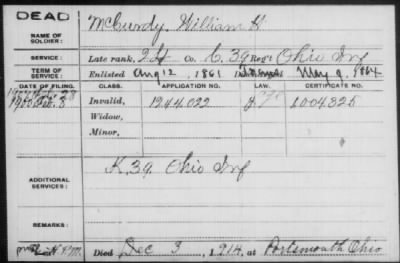 DEAD
NAME OF SOLDIER: McCurdy, William H.
SERVICE: Late rank, 2 Lt Co. C, 39 Reg't Ohio Inf
TERM OF SERVICE: Enlisted Aug 12, 1861 May 9, 1864
DATE OF FILING. CLASS. APPLICATION NO. LAW. CERTIFICATE NO.
Invalid, 1244,022 1004325
Widow,
Minor,
ADDITIONAL SERVICES: K. 39 Ohio Inf
REMARKS:
Died Dec 3, 1914, at Portsmouth Ohio